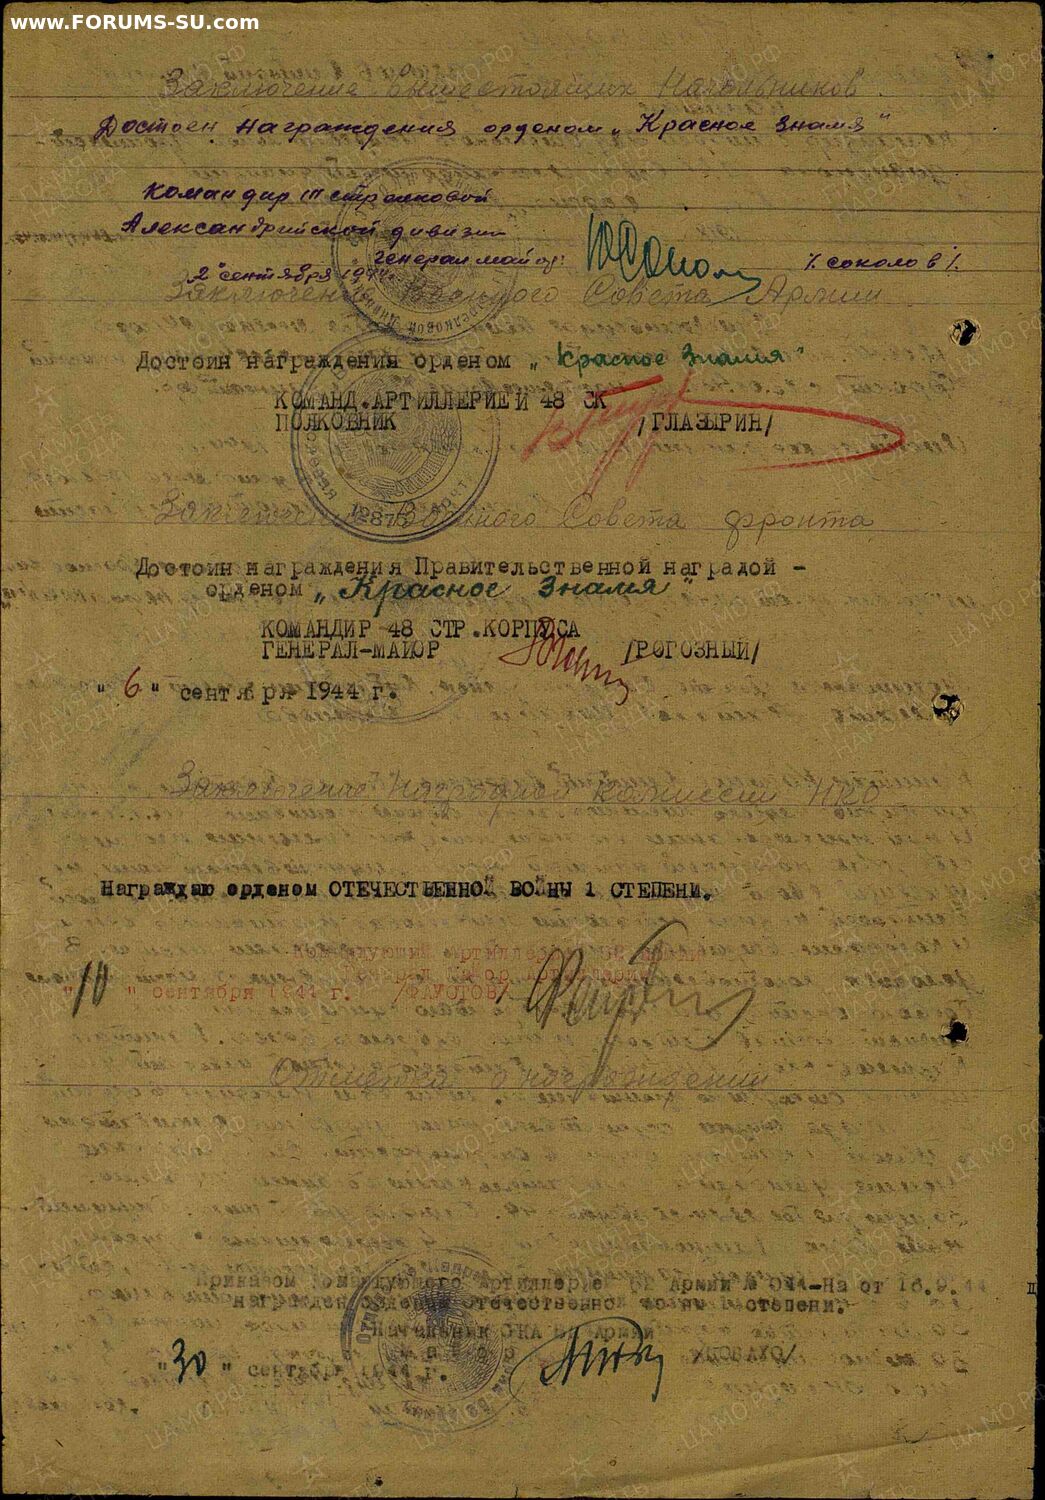 www.FORUMS-SU.com
Заключение вышестоящих Начальников.
Достоен награждения орденом „Красное Знамя"
Командир III стрелковой
Александрийской дивизии
генерал майор: /Соколов/.
2 сентября 1944
Заключение Военного Совета Армии
Достоин награждения орденом „Красное Знамя"
КОМАНД.АРТИЛЛЕРИЕЙ 48 СК
ПОЛКОВНИК /ГЛАЗЫРИН/
Заключение Военного Совета фронта
Достоин награждения Правительственной наградой -
орденом „Красное Знамя"
КОМАНДИР 48 СТР.КОРПУСА
ГЕНЕРАЛ-МАЙОР /РОГОЗНЫЙ/
"6" сентября 1944 г.
Заключение Наградной комиссии НКО
Награждаю орденом ОТЕЧЕСТВЕННОЙ ВОЙНЫ 1 СТЕПЕНИ.
Командующий Артиллерией Армии
Генерал Майор Артиллерии
"10" сентября 1944 г. /ФАУСТОВ/
Отметка о награждении
Приказом Командующего Артиллерие Армии № от 18.9.44
награжден орденом отечественной войны 1 степени.
Начальник ОКА Армии
майор
"30" сентября 1944 г.